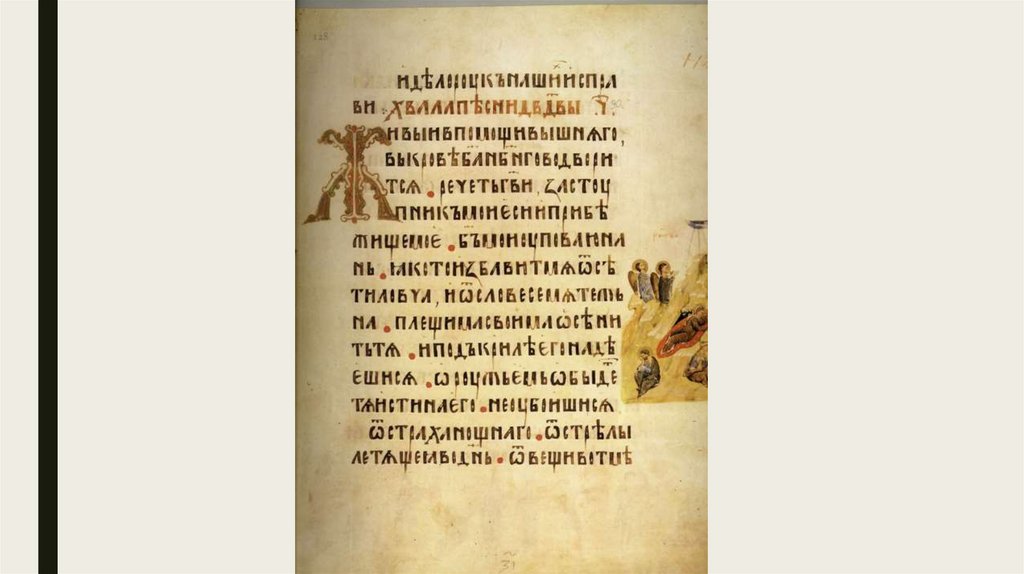 128
и дѣло рѹкъ нашии испра
ви хвала пѣсни дв҃двы ч҃
Живыи в помощи вышняго,
въ кровѣ б҃а нб҃нго водвори
тсѧ . речеть гв҃и , застѹ
пникъ мои еси и прибѣ
жище мое . б҃ъ мои ѹповаю на
нь . ꙗко тои избавит мѧ ѿ сѣ
ти ловча , и ѿ словесе мѧтежь
на . плещима своима ѡсѣни
ть тѧ . и подъ крилѣ его надѣ
ешисѧ . ѡрѹжьемь ѡбыде
тѧ истина его . не ѹбоишисѧ
ѿ страха нощнаго . ѿ стрѣлы
летѧщеꙗ въ дн҃ь . ѿ вещи во тмѣ